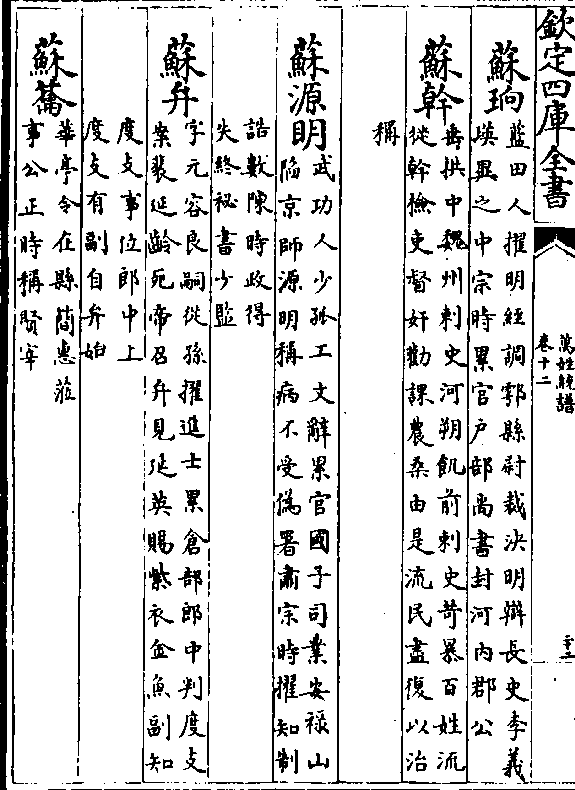 欽定四庫全書
萬姓統譜
卷十二
蘇珦
藍田人擢明經調鄠縣尉裁決明辯長史李義
琰異之中宗時累官戶部尚書封河內郡公
蘇幹
垂拱中魏州刺史河朔飢前刺史苛暴百姓流
徙幹檢吏督奸勸課農桑由是流民盡復以治
稱
蘇源明
武功人少孤工文辭累官國子司業安祿山
陷京師源明稱病不受偽署肅宗時擢知制
誥數陳時政得
失終秘書少監
蘇弁
字元容良嗣從孫擢進士累倉部郎中判度支
案裴延齡死帝召弁見延英賜紫衣金魚副知
度支事位郎中上
度支有副自弁始
蘇萬
華亭令在縣簡惠蒞
事公正時稱賢宰